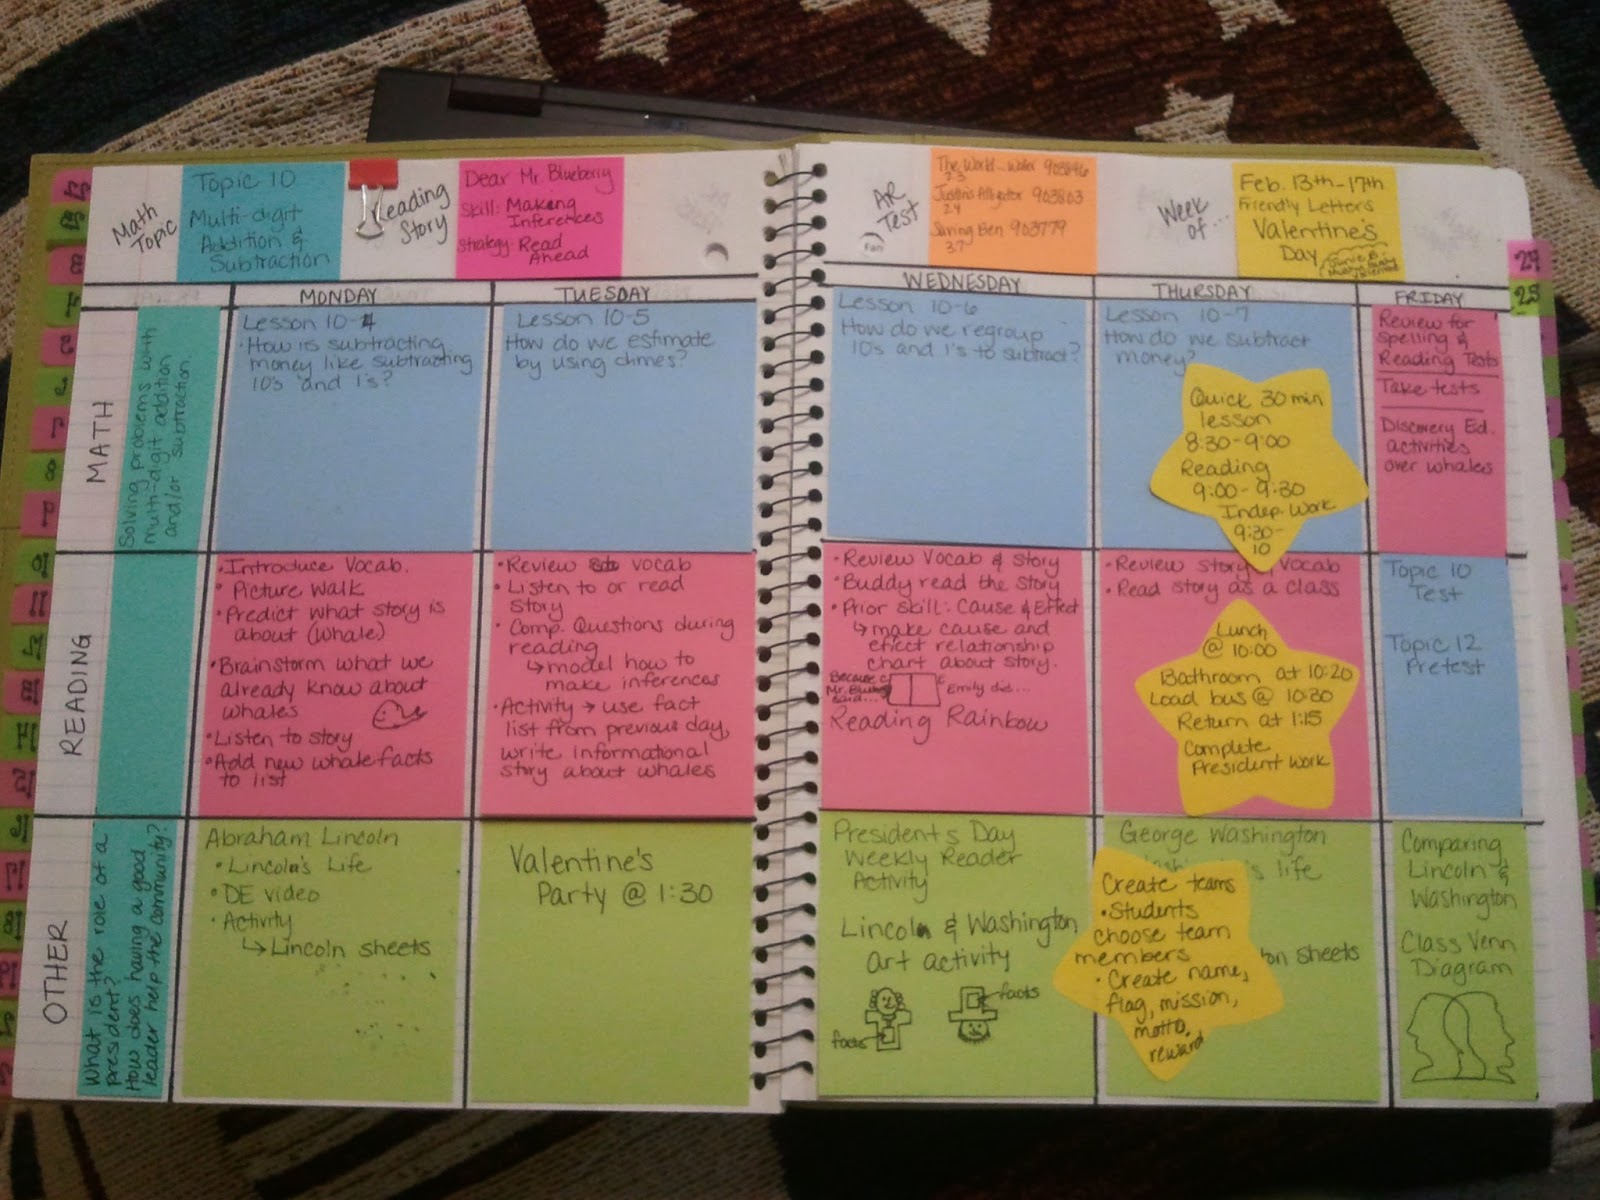 Math
Topic
Topic 10
Multi-digit
Addition &
Subtraction
Reading
Story
Dear Mr. Blueberry
Skill: Making
Inferences
Strategy: Read
Ahead
AR
Test
Fan
The World... water 903896
2.3
Justin's Alligator 903803
2.4
Saving Ben 903779
3.7
Week
of...
Feb. 13th-17th
Friendly Letters
Valentine's
Day
Junie B.
MONDAY
TUESDAY
WEDNESDAY
THURSDAY
FRIDAY
MATH
Solving problems with
multi-digit addition
and/or subtraction
Lesson 10-4
• How is subtracting
money like subtracting
10's and 1's?
Lesson 10-5
How do we estimate
by using dimes?
Lesson 10-6
How do we regroup
10's and 1's to subtract?
Lesson 10-7
How do we subtract
money?
Quick 30 min
lesson
8:30-9:00
Reading
9:00-9:30
Indep. Work
9:30-
10
Review for
Spelling &
Reading Tests
Take tests
Discovery Ed.
activities
over whales
READING
• Introduce Vocab.
• Picture Walk
• Predict what story is
about (whale)
• Brainstorm what we
already know about
whales
• Listen to story
• Add new whale facts
to list
• Review vocab
• Listen to or read
story
• Comp. Questions during
reading
↳ model how to
make inferences
• Activity → use fact
list from previous day,
write informational
story about whales
• Review Vocab & Story
• Buddy read the story
• Prior skill: Cause & Effect
↳ make cause and
effect relationship
chart about story.
Because
Mr. Blueberry
said...
Emily did...
Reading Rainbow
• Review story & vocab
• Read story as a class
Lunch
@ 10:00
Bathroom at 10:20
Load bus @ 10:30
Return at 1:15
Complete
President work
Topic 10
Test
Topic 12
Pretest
OTHER
What is the role of a
president?
How does having a good
leader help the community?
Abraham Lincoln
• Lincoln's Life
• DE video
• Activity
↳ Lincoln sheets
Valentine's
Party @ 1:30
President's Day
Weekly Reader
Activity
Lincoln & Washington
Art activity
facts
facts
George Washington
life
on sheets
Create teams
• Students
choose team
members
• Create name,
flag, mission,
motto,
reward
Comparing
Lincoln &
Washington
Class Venn
Diagram
27
28